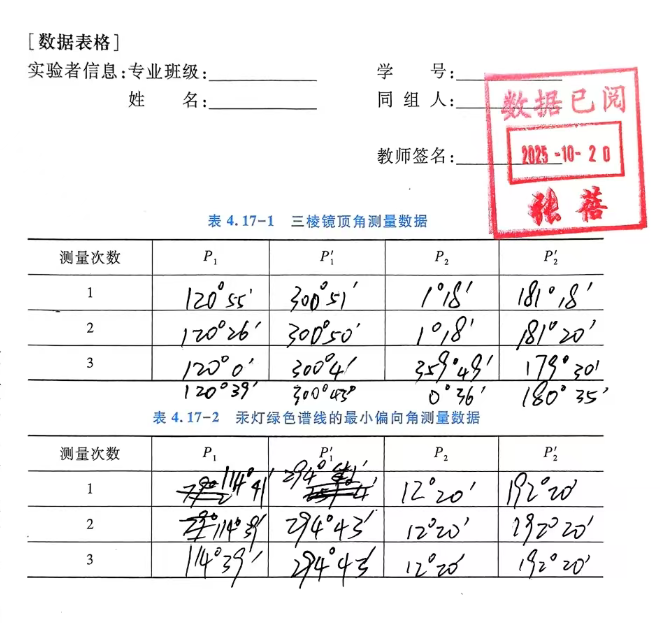 [数据表格]
实验者信息:专业班级: 学 号:
姓 名: 同 组 人:
教师签名:
数据已阅
2025-10-20
张蓓
表 4.17-1 三棱镜顶角测量数据
测量次数 P₁ P₁′ P₂ P₂′
1 120°55′ 300°51′ 1°18′ 181°18′
2 120°26′ 300°50′ 1°18′ 181°20′
3 120°0′ 300°4′ 359°49′ 179°30′
120°39′ 0°36′ 180°35′
表 4.17-2 汞灯绿色谱线的最小偏向角测量数据
测量次数 P₁ P₁′ P₂ P₂′
1 114°41′ 12°20′ 192°20′
2 114°39′ 294°43′ 12°20′ 192°20′
3 114°39′ 294°43′ 12°20′ 192°20′